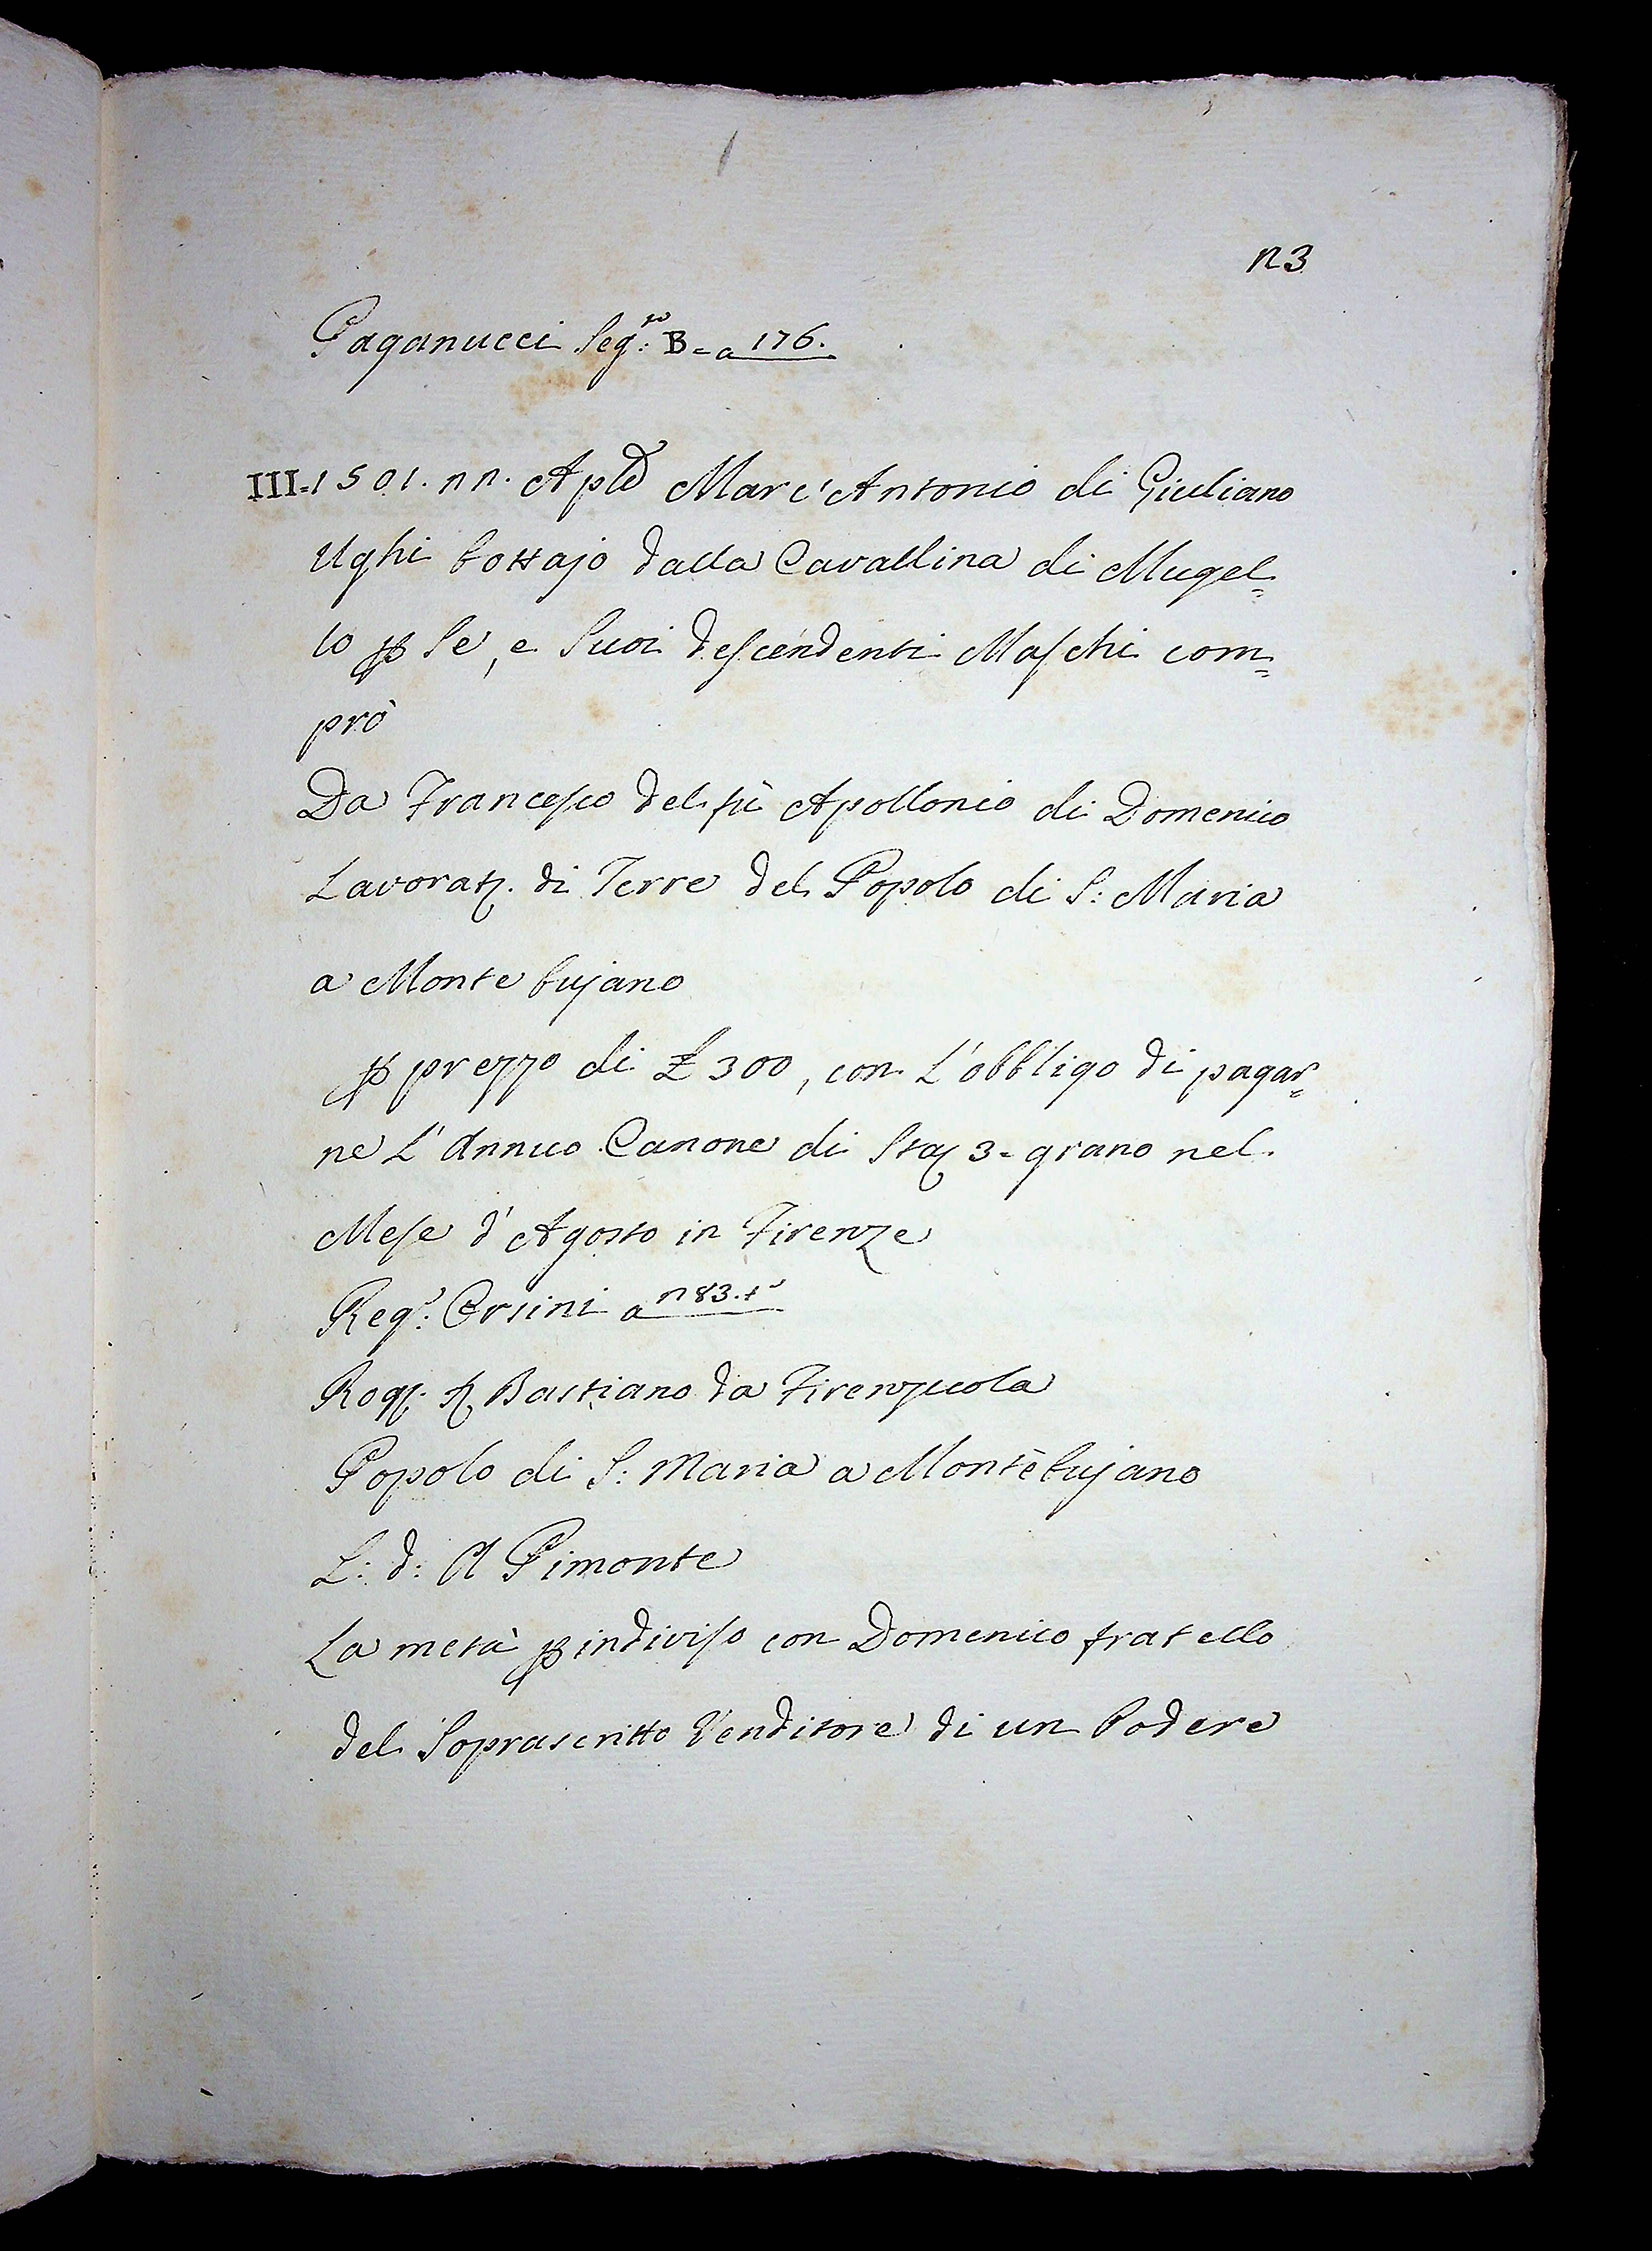 n3
Paganucci Seg:to B = a 176.
III = 1501. nn. Aple Marc'Antonio di Giuliano
Ughi bottajo dalla Cavallina di Mugel=
lo p Se, e Suoi descendenti Maschi com=
prò
Da Francesco del fù Apollonio di Domenico
Lavorat. di Terre del Popolo di S: Maria
a Monte bujano
p prezzo di £ 300, con L'obbligo di pagar=
ne L'Annuo Canone di Sta 3 = grano nel
Mese d'Agosto in Firenze
Reg:o Orsini a n83.to
Rog. Bastiano da Firenzuola
Popolo di S: Maria a Montèbujano
L: d: A Pimonte
La metà p indiviso con Domenico fratello
del Soprascritto Venditore di un Podere